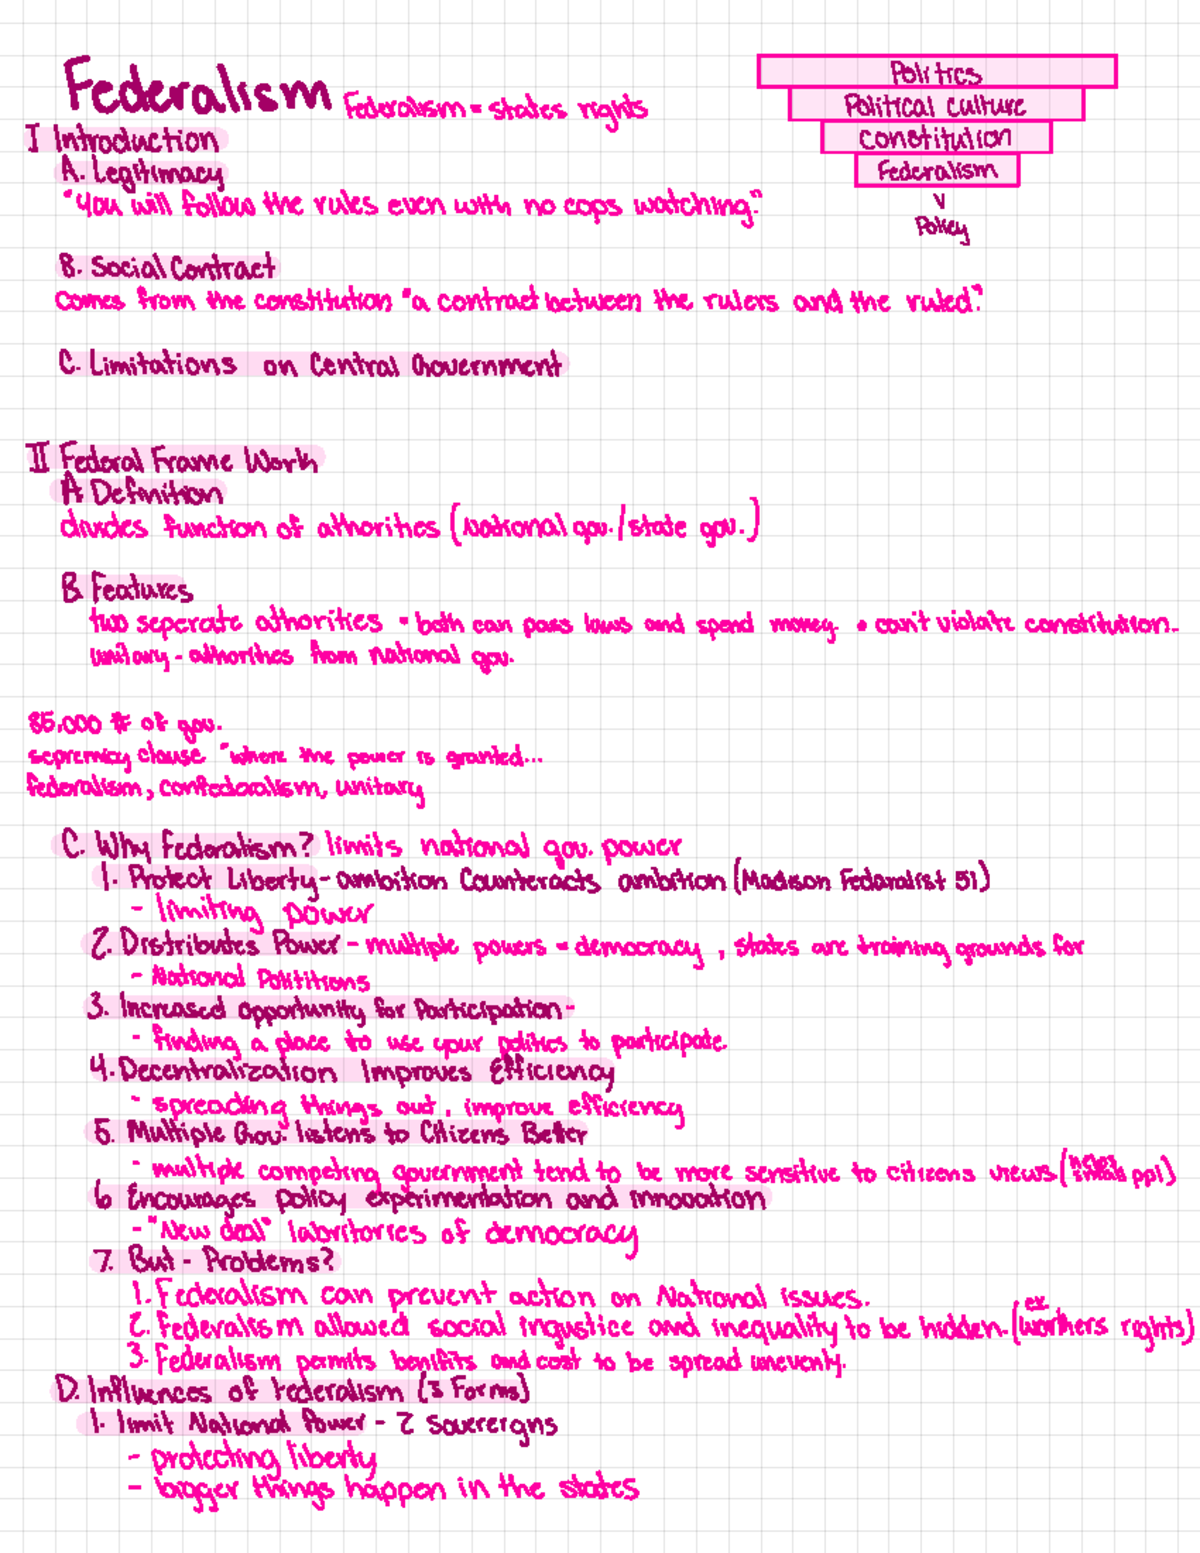 Federalism Federalism = states rights
Politics
Political culture
Constitution
Federalism
v
Policy
I Introduction
A. Legitimacy
"You will follow the rules even with no cops watching."
B. Social Contract
Comes from the constitution "a contract between the rulers and the ruled."
C. Limitations on Central Government
II Federal Frame Work
A Definition
divides function of athorities (National gov./state gov.)
B. Features
two seperate athorities • both can pass laws and spend money • can't violate constitution.
unitary - athorities from national gov.
85,000 # of gov.
sepremicy clause "where the power is granted...
federalism, confederalism, unitary
C. Why Federalism? limits national gov. power
1. Protect Liberty - ambition Counteracts ambition (Madison Federalist 51)
- limiting power
2. Distributes Power - multiple powers = democracy, states are training grounds for
- National Polititions
3. Increased opportunity for Participation -
- finding a place to use your politics to participate.
4. Decentralization Improves Efficiency
- spreading things out, improve efficiency
5. Multiple Gov. listens to Citizens Better
- multiple competing government tend to be more sensitive to citizens views ( ppl)
6 Encourages policy experimentation and innovation
- "New deal" labritories of democracy
7. But - Problems?
1. Federalism can prevent action on National issues.
2. Federalism allowed social ingustice and inequality to be hidden. (ex workers rights)
3. Federalism permits benifits and cost to be spread unevenly.
D. Influences of Federalism (3 Forms)
1. limit National Power - 2 Sovereigns
- protecting liberty
- bigger things happen in the states